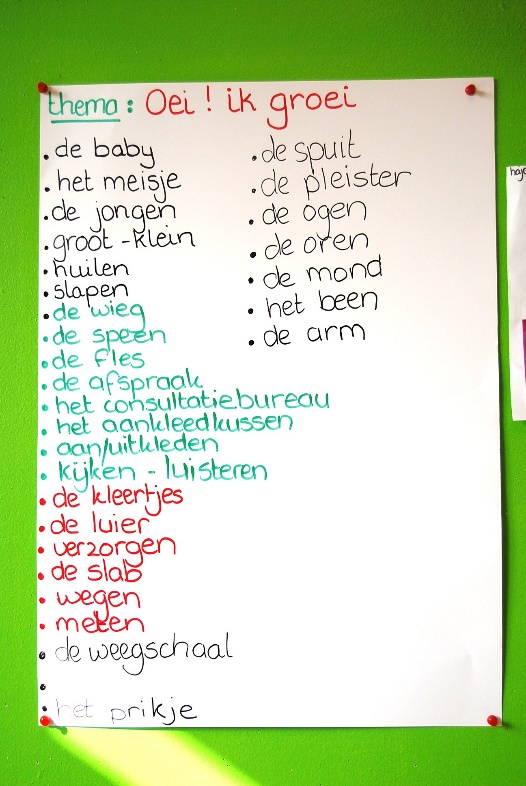 thema: Oei! ik groei
. de baby
. het meisje
. de jongen
. groot - klein
. huilen
. slapen
. de wieg
. de speen
. de fles
. de afspraak
. het consultatiebureau
. het aankleedkussen
. aan/uitkleden
. kijken - luisteren
. de kleertjes
. de luier
. verzorgen
. de slab
. wegen
. meten
. de weegschaal
.
. het prikje
. de spuit
. de pleister
. de ogen
. de oren
. de mond
. het been
. de arm